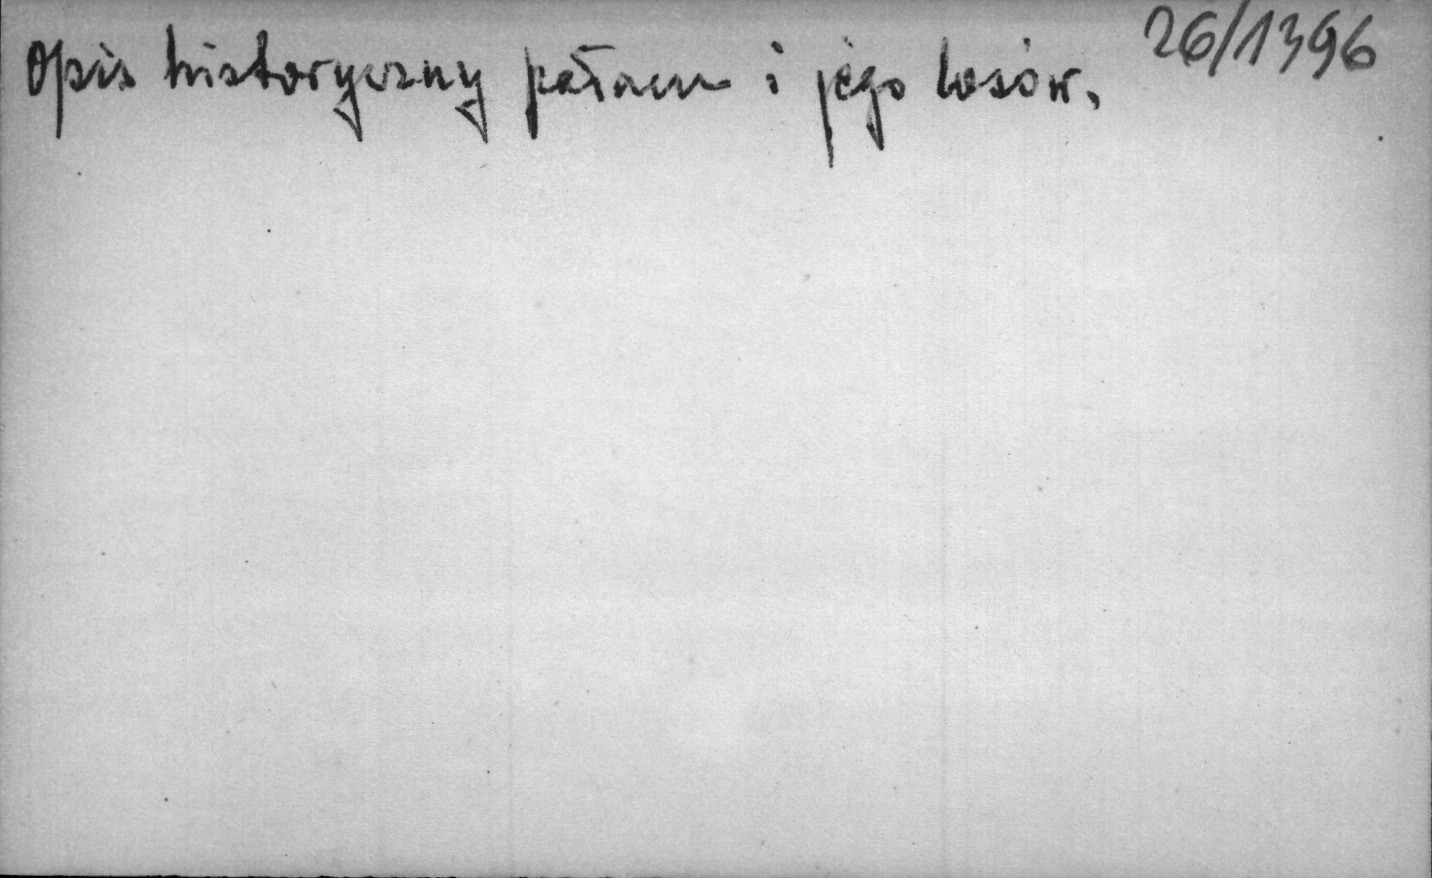 26/1396
Opis historyczny pałacu i jego losów.